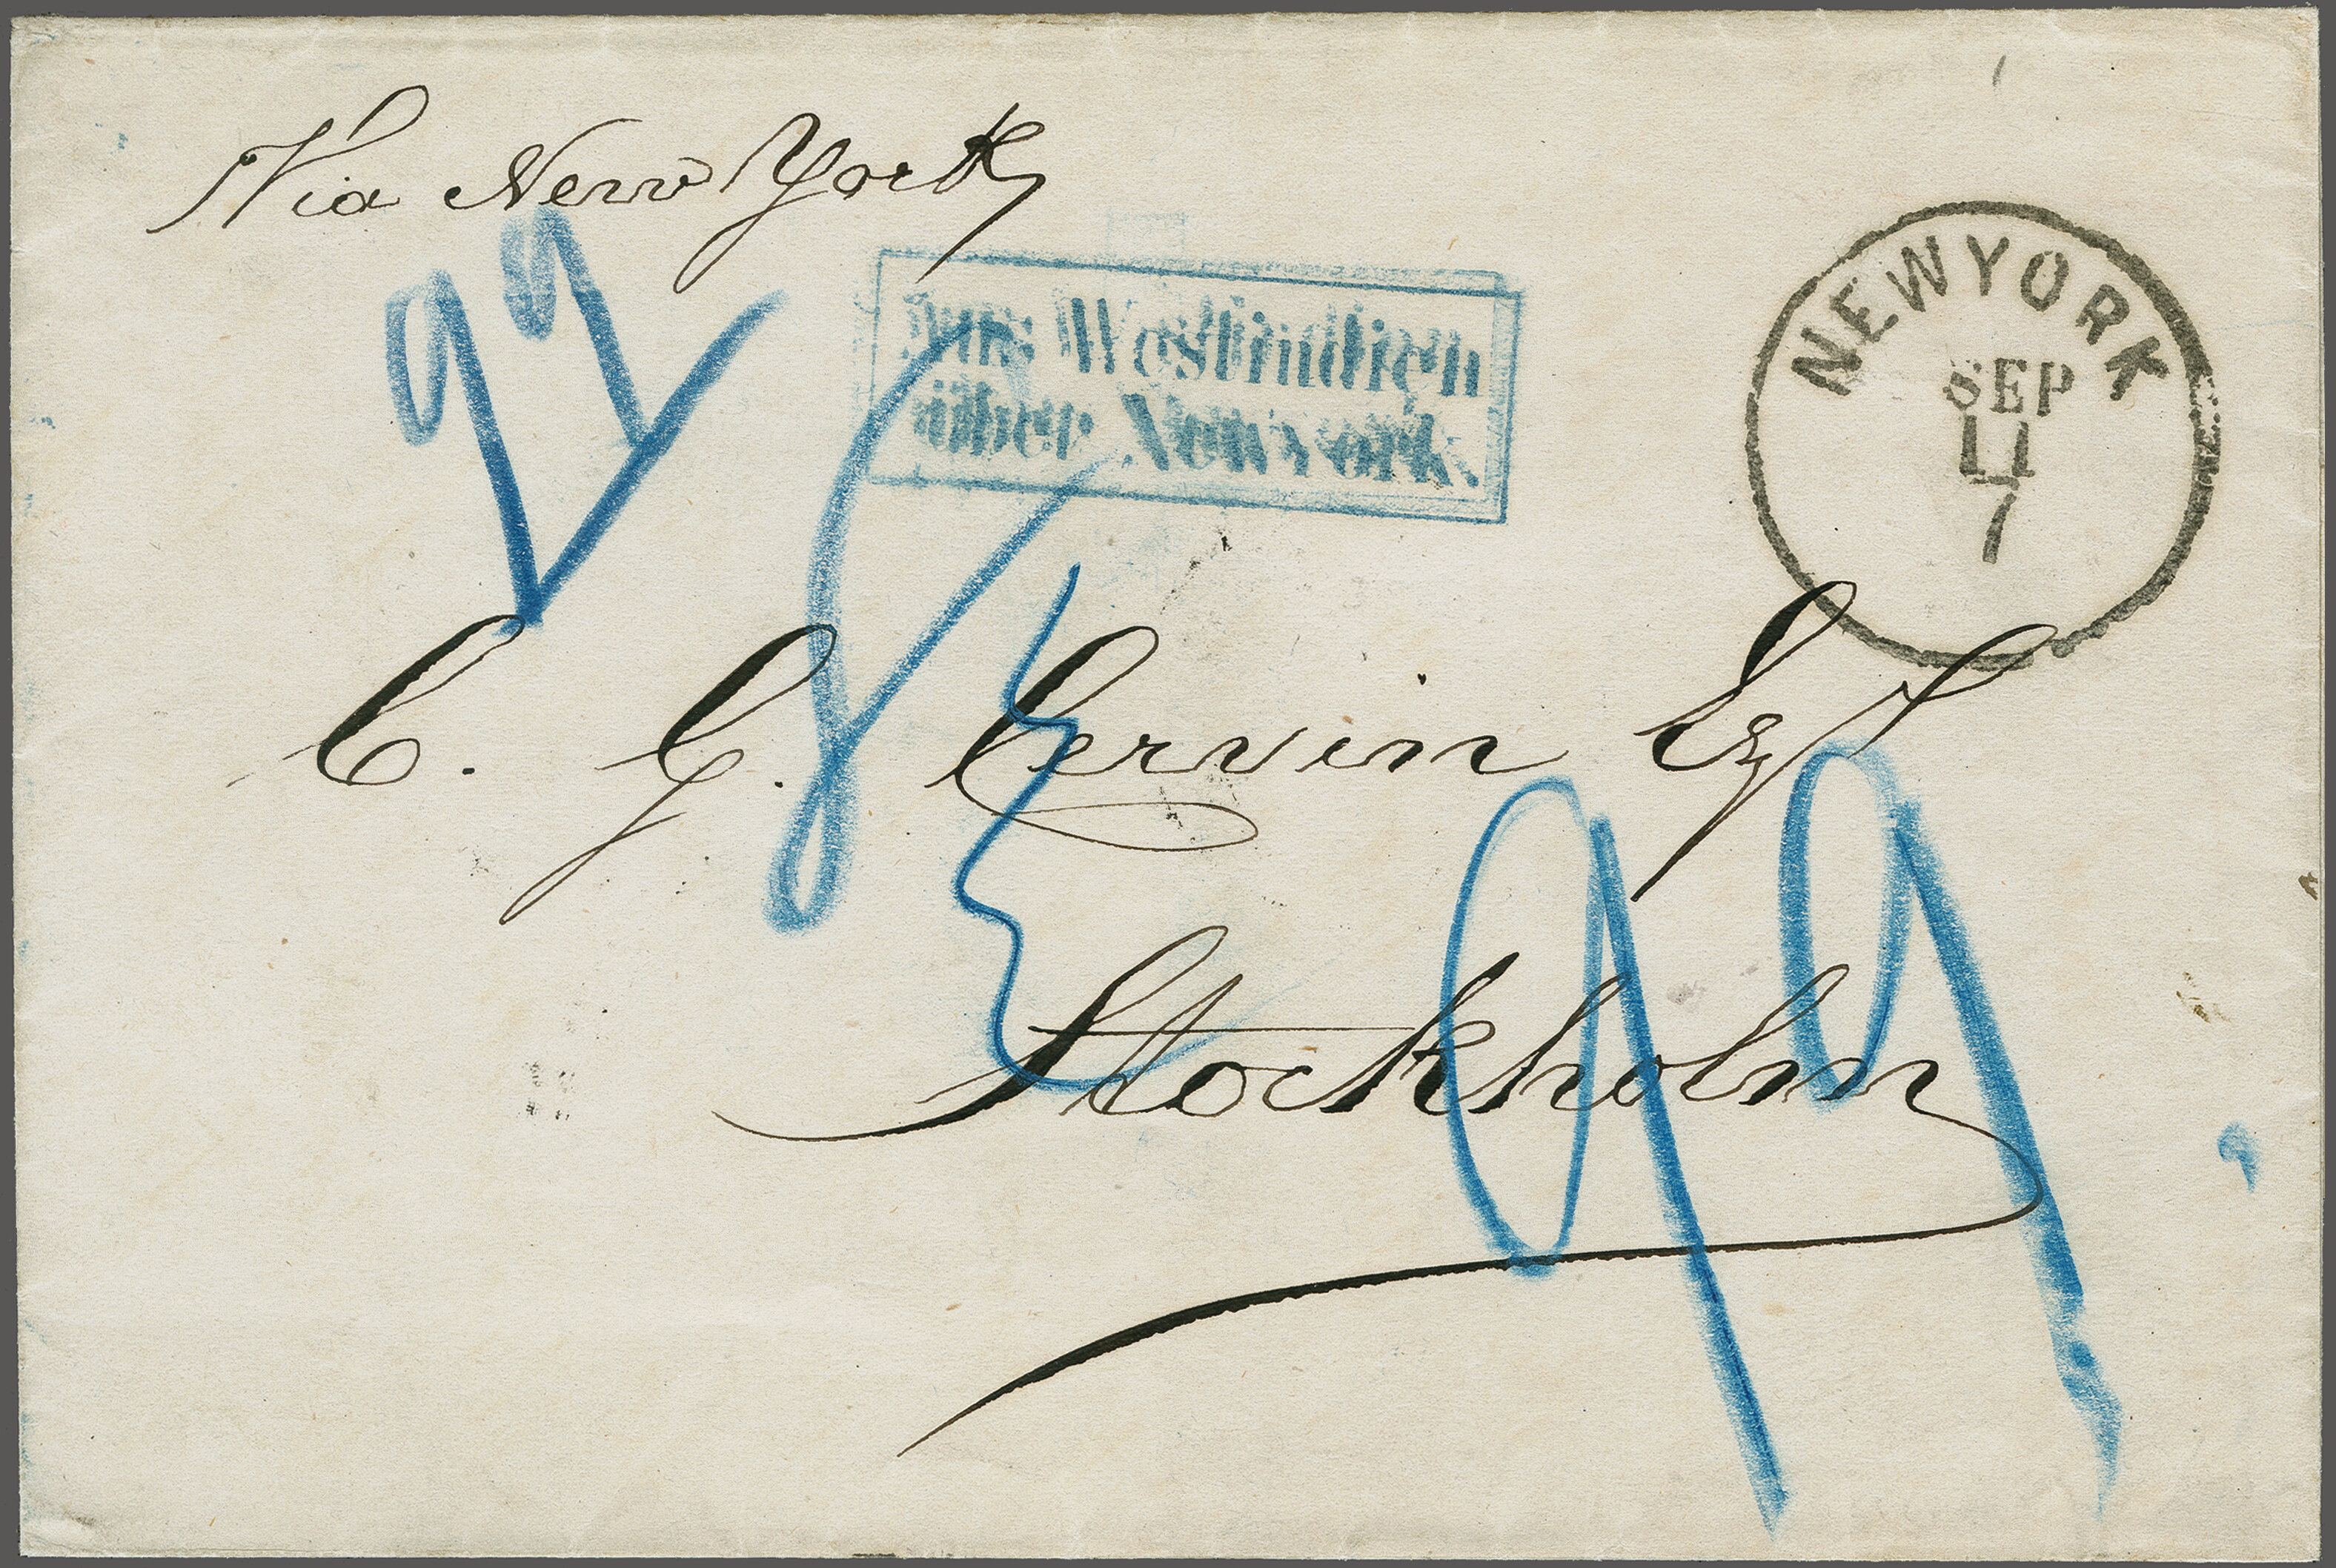 Via New York
Aus Westindien
über Newyork.
NEW YORK
SEP
11
7
C. G. Cervin Esqr
Stockholm
99